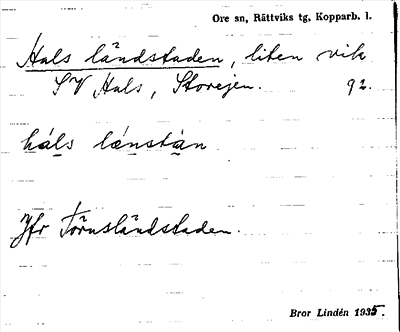 Ore sn, Rättviks tg, Kopparb. l.
Hals ländstaden, liten vik
SV Hals, Storejen. 92.
háls lǽnstàn
Jfr Törnsländstaden.
Bror Lindén 1935.